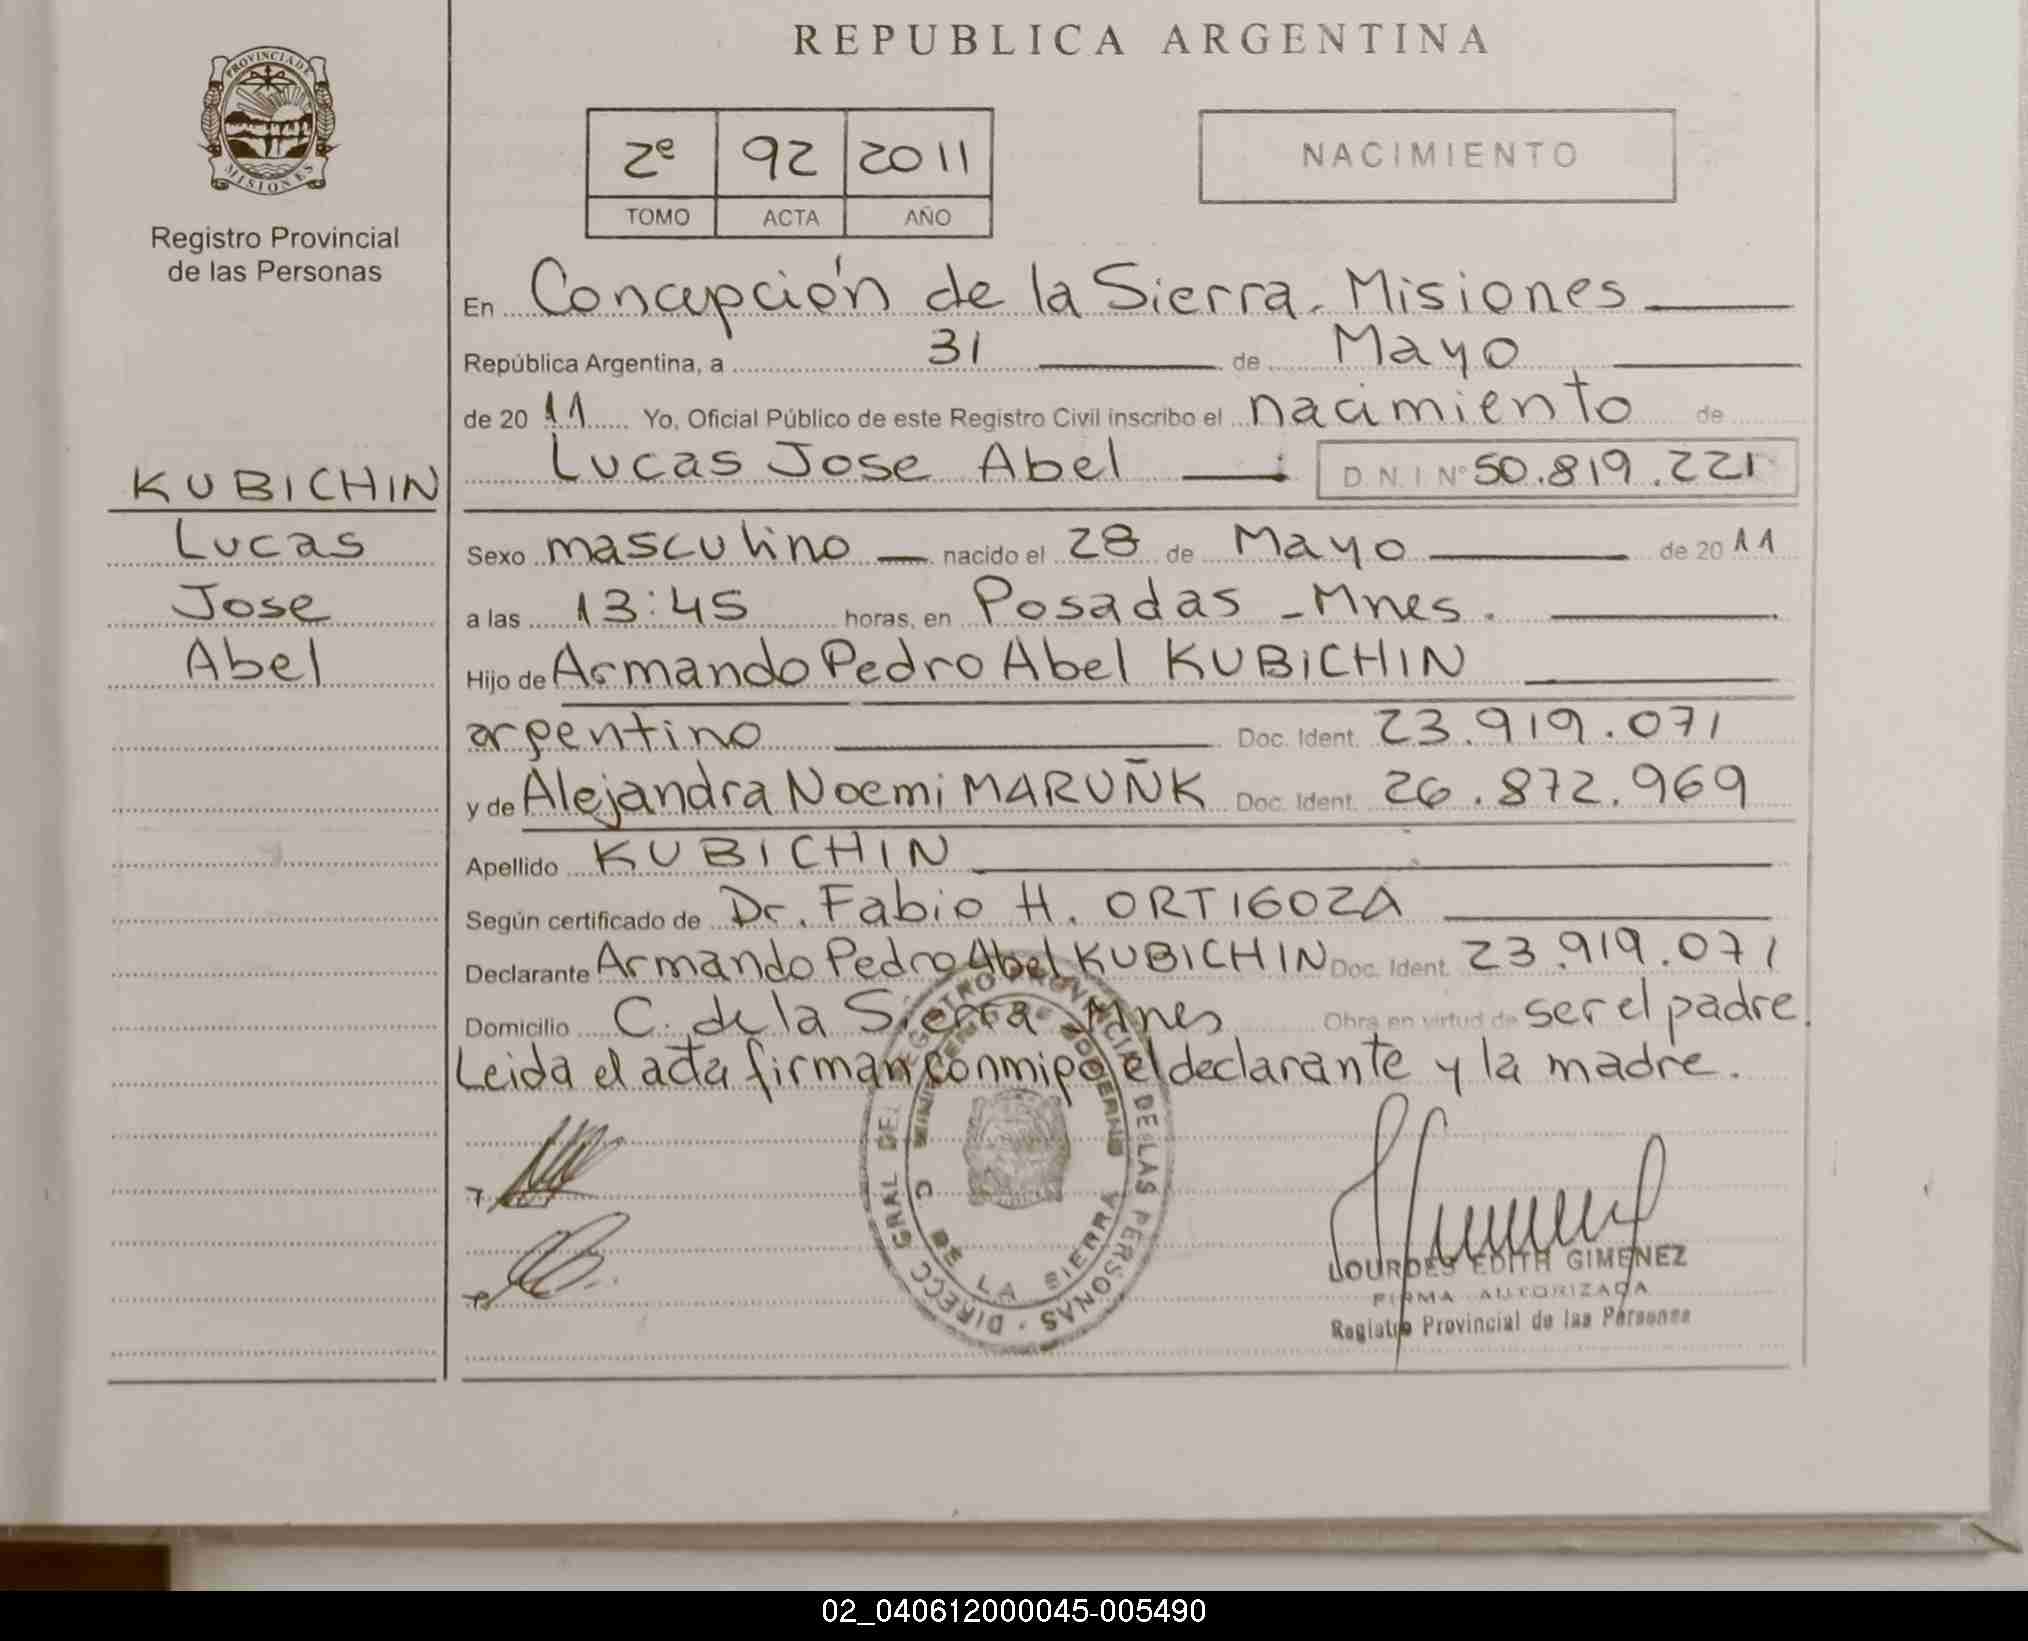 REPUBLICA ARGENTINA
PROVINCIA DE
MISIONES
Registro Provincial
de las Personas
2e 92 2011
TOMO ACTA AÑO
NACIMIENTO
En Concepción de la Sierra. Misiones
República Argentina, a 31 de Mayo
de 20 11 Yo, Oficial Público de este Registro Civil inscribo el nacimiento de
Lucas Jose Abel D.N.I Nº 50.819.221
KUBICHIN
Lucas
Jose
Abel
Sexo masculino nacido el 28 de Mayo de 20 11
a las 13:45 horas, en Posadas - Mnes.
Hijo de Armando Pedro Abel KUBICHIN
argentino Doc. Ident. 23.919.071
y de Alejandra Noemi MARUÑK Doc. Ident. 26.872.969
Apellido KUBICHIN
Según certificado de Dr. Fabio H. ORTIGOZA
Declarante Armando Pedro Abel KUBICHIN Doc. Ident. 23.919.071
Domicilio C. de la Sierra Mnes Obra en virtud de ser el padre.
Leida el acta firman conmigo el declarante y la madre.
DIRECC GRAL DEL REGISTRO PROVINCIAL DE LAS PERSONAS
MINISTERIO DE GOBIERNO
C DE LA SIERRA
LOURDES EDITH GIMENEZ
FIRMA AUTORIZADA
Registro Provincial de las Personas
02_040612000045-005490